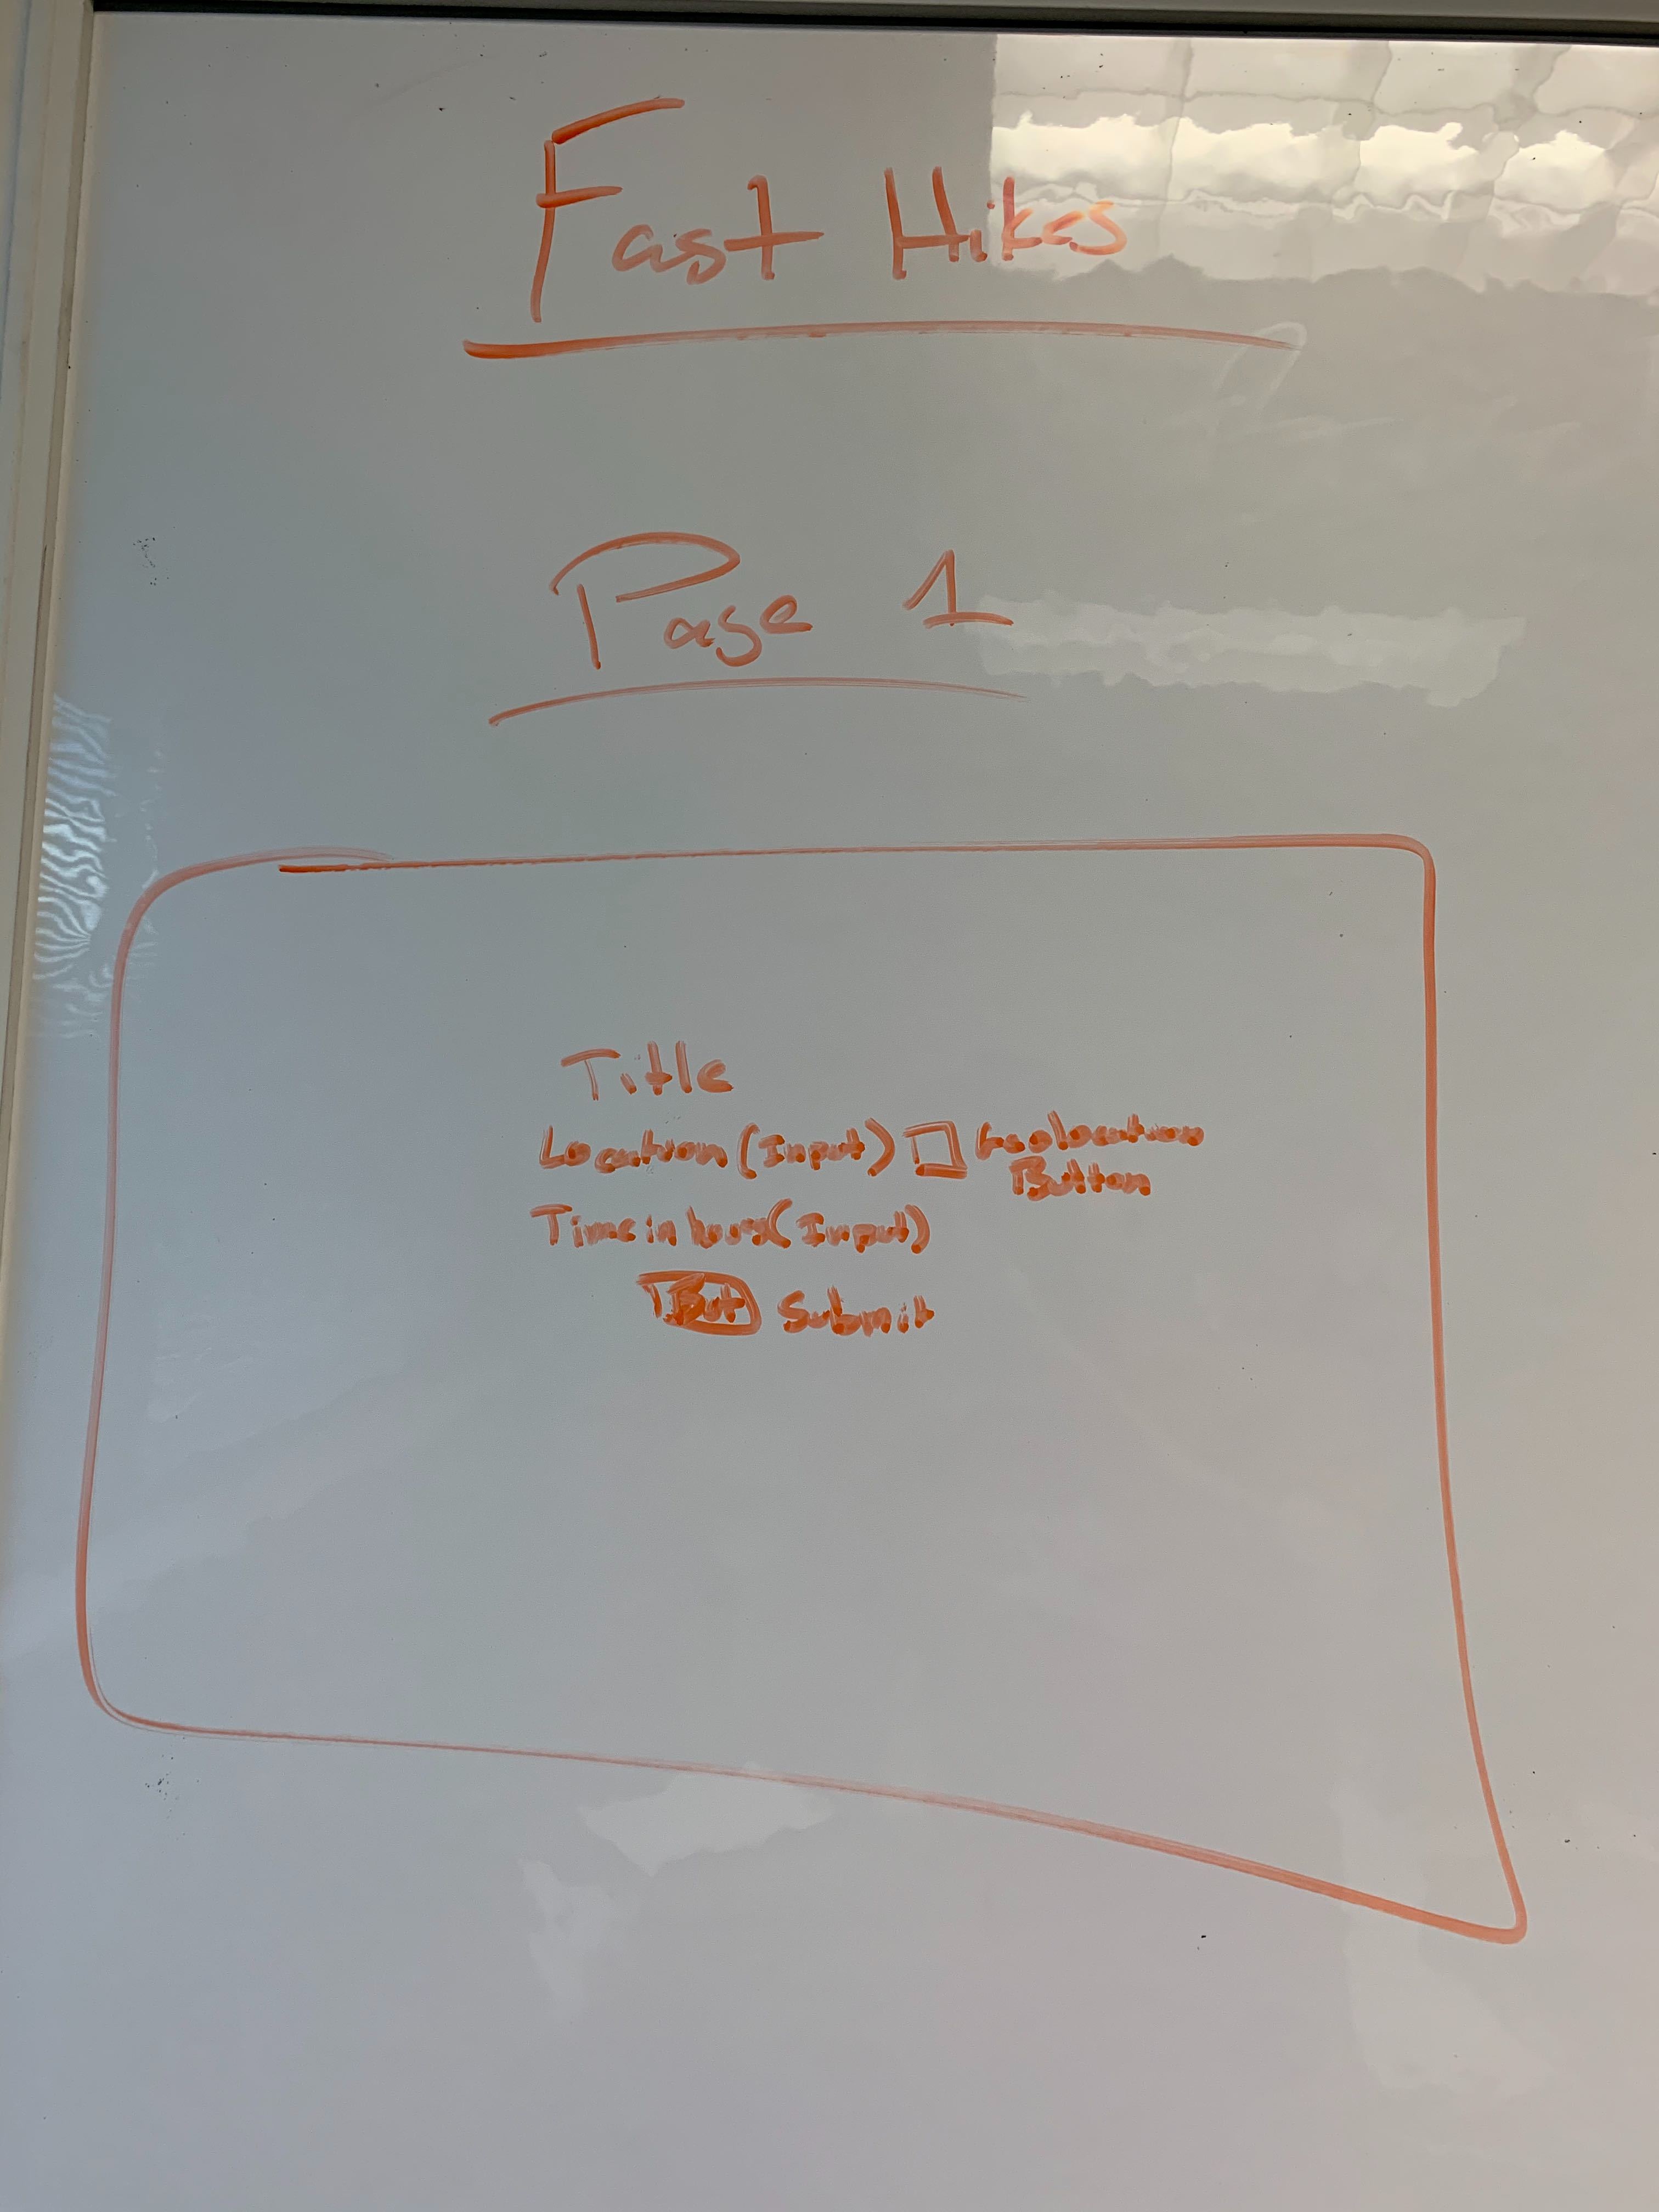 Fast Hikes
Page 1
Title
Location (Input) Geolocation
Button
Time in hours (Input)
But Submit